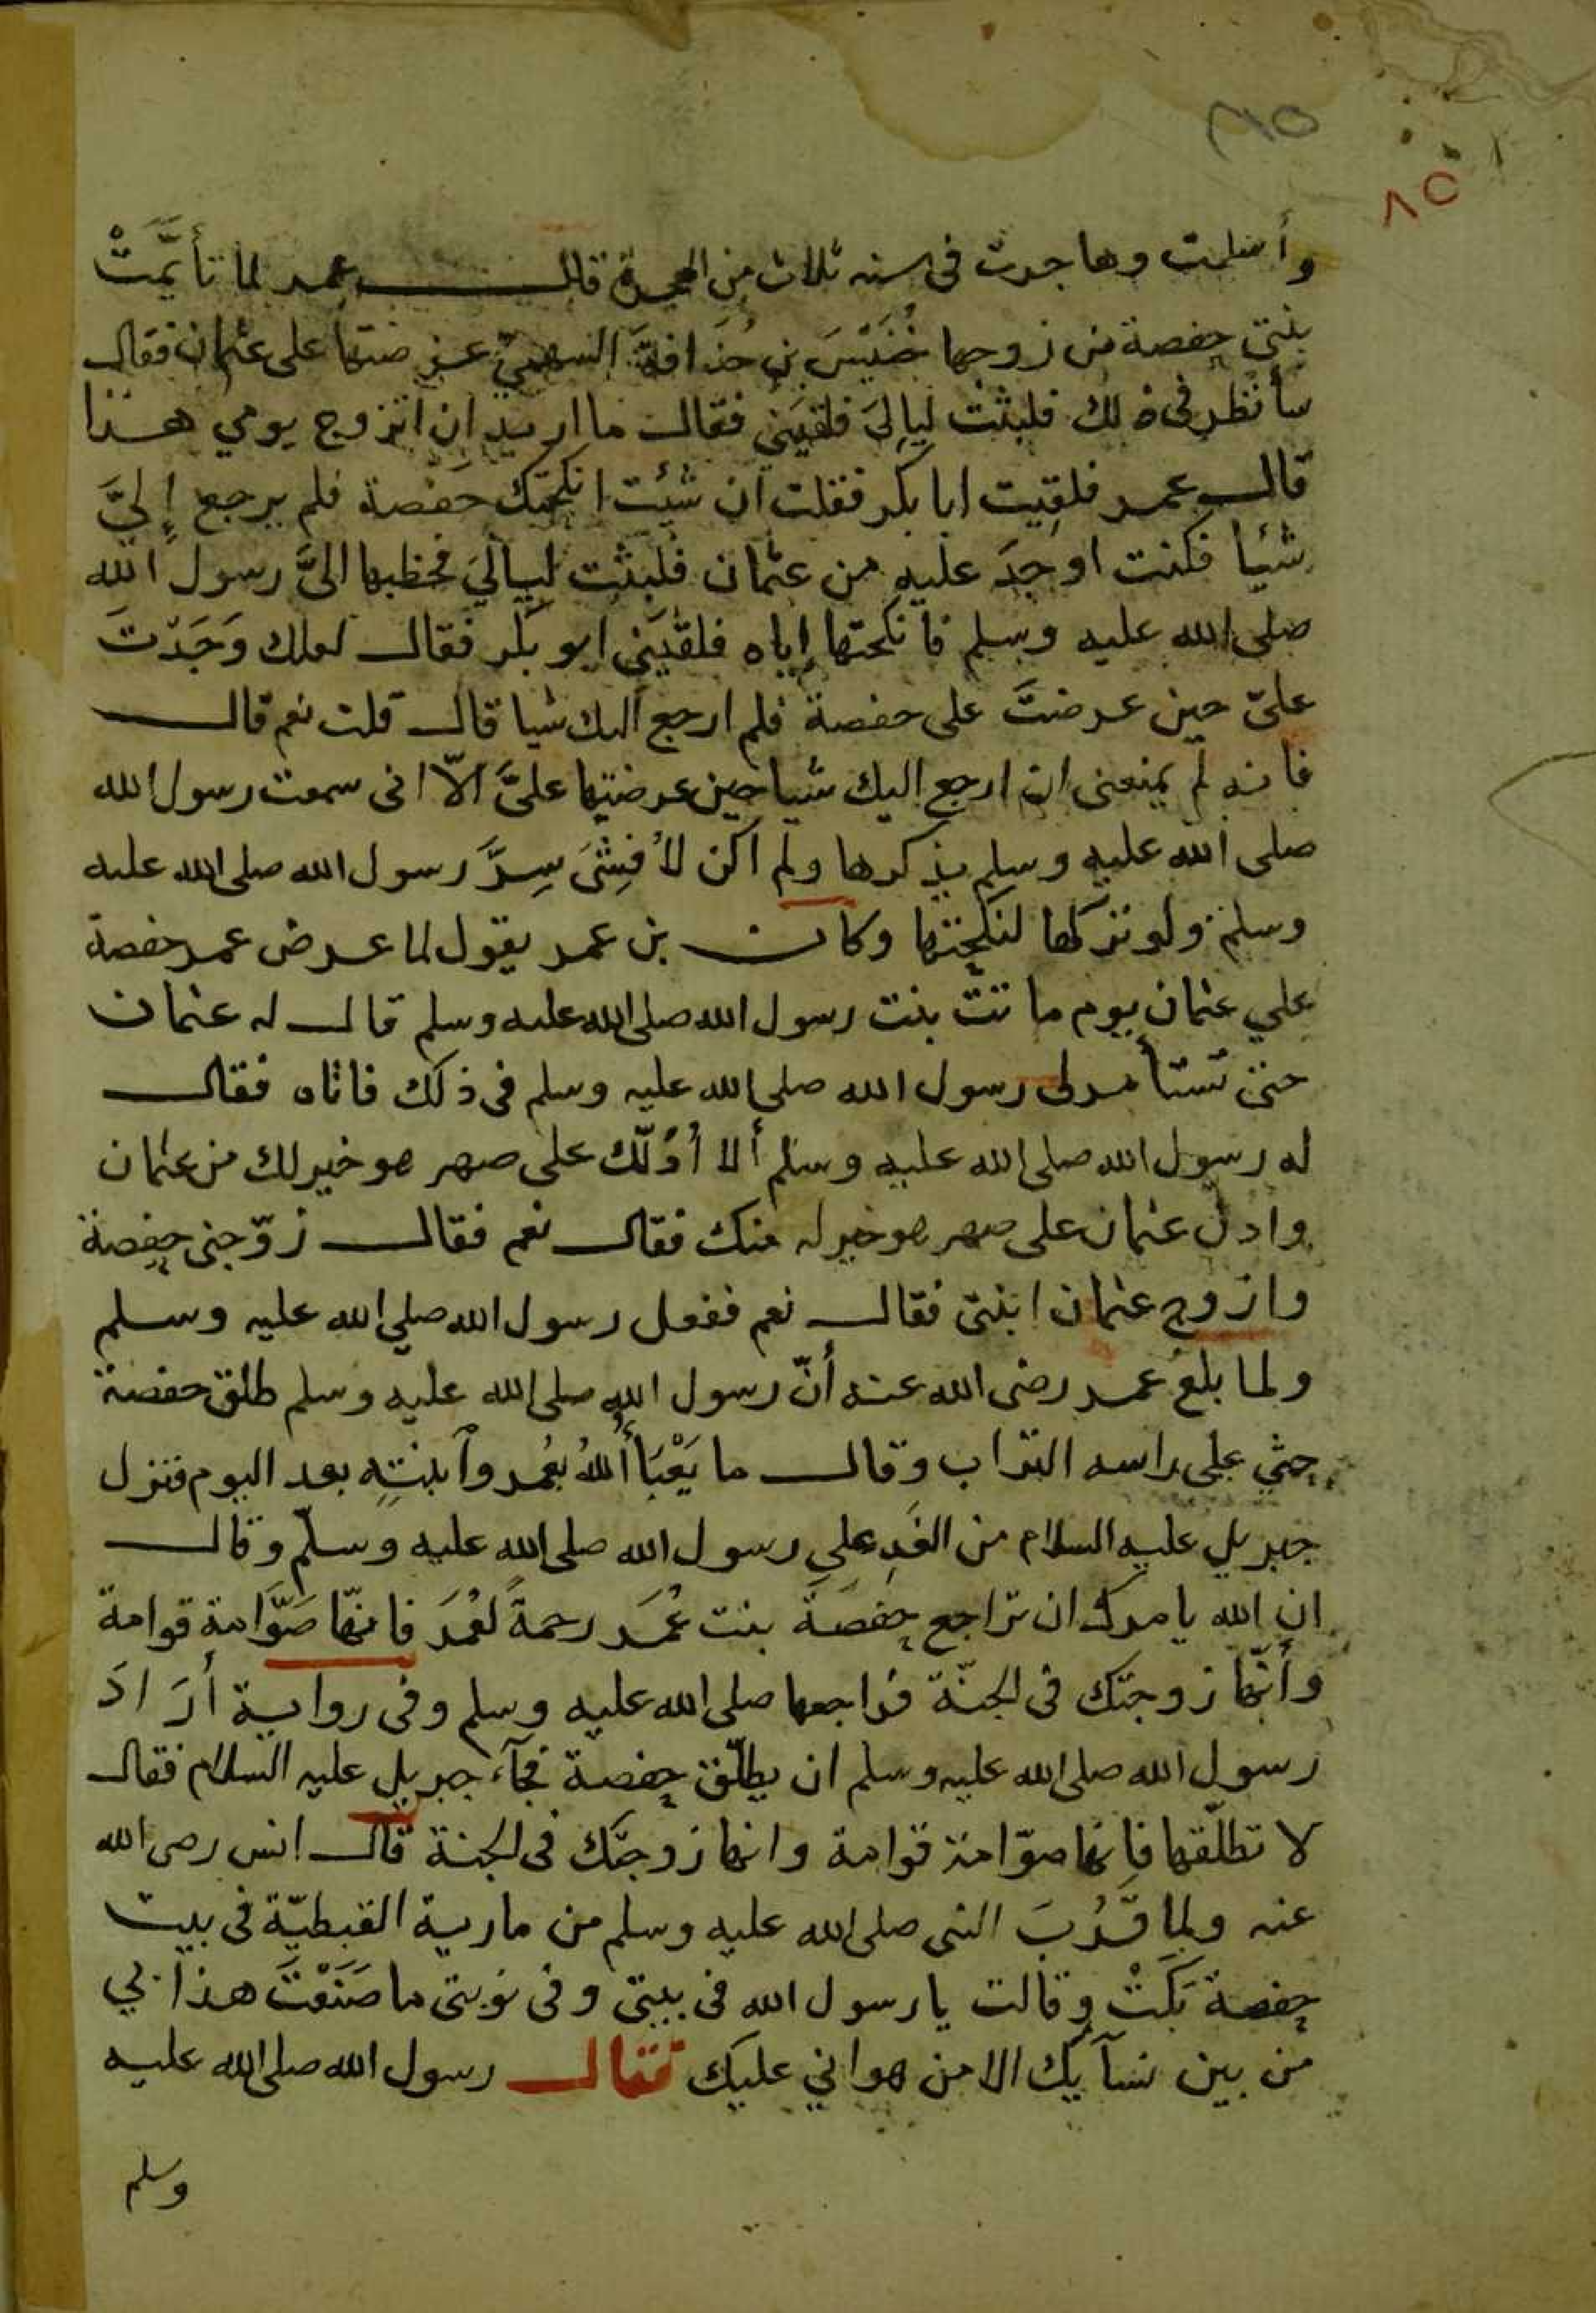 ٨٥
وأسلمت وهاجرت فى سنه ثلاث من الهجرة قال عمر لما تأيَّمَتْ
بنتي حفصة من زوجها خُنَيْسَ بن حُذَافةَ السهميّ عرضتها على عثمان فقال
سأنظر فى ذلك فلبثت ليالىَ فلقيَني فقال ما اريد ان اتزوج يومي هذا
قال عمر فلقيت ابا بكر فقلت ان شئت انكحتك حفصة فلم يرجع إليَّ
شئيا فكنت اوجدَ عليه من عثمان فلبثت ليالىَ فخطبها الىَّ رسول الله
صلى الله عليه وسلم فانكحتها إياه فلقيَني ابو بكر فقال لعلك وَجَدْتَ
علىّ حين عرضتَ على حفصة فلم ارجع اليك شيا قال قلت نعم قال
فانه لم يمنعنى ان ارجع اليك شيا حين عرضتها علىَّ الّا انى سمعت رسول الله
صلى الله عليه وسلم يذكرها ولم اكن لأُفشِىَ سِرَّ رسول الله صلى الله عليه
وسلم ولو تركها لنكحتها وكان بن عمر يقول لما عرض عمر حفصة
علي عثمان يوم ماتت بنت رسول الله صلى الله عليه وسلم قال له عثمان
حتى تستأمر لى رسول الله صلى الله عليه وسلم فى ذلك فاتاه فقال
له رسول الله صلى الله عليه وسلم ألا أدُلّك على صهر هو خير لك من عثمان
وادل عثمان على صهر هو خير له منك فقال نعم فقال زوّجنى حفصة
وازوج عثمان ابنتى فقال نعم ففعل رسول الله صلي الله عليه وسلم
ولما بلغ عمر رضى الله عنه أنّ رسول الله صلى الله عليه وسلم طلق حفصة
حثي على راسه التراب وقال ما يَعْبَأُ اللهُ بعُمر وٱبنتِه بعد اليوم فنزل
جبريل عليه السلام من الغَدِ على رسول الله صلى الله عليه وسلّم وقال
ان الله يامرك ان تراجع حفصَةَ بنت عُمَر رحمةً لعُمَر فانّها صَوَّامة قوامة
وأنّها زوجتك فى الجنّة فراجعها صلى الله عليه وسلم وفى رواية أرَادَ
رسول الله صلى الله عليه وسلم ان يطلّق حفصة فجآء جبريل عليه السلام فقال
لا تطلّقها فانها صوّامة قوامة وانها زوجتك فى الجنة قال انس رضى الله
عنه ولما قَرُبَ النبى صلى الله عليه وسلم من مارية القبطيّة فى بيت
حفصة بَكَتْ وقالت يا رسول الله فى بيتى وفى نوبتى ما صَنَعْتَ هذا بي
من بين نسآيك الا من هواني عليك فقال رسول الله صلى الله عليه
وسلم